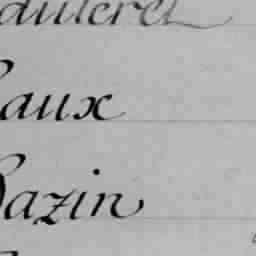 auteret
aux
Bazin